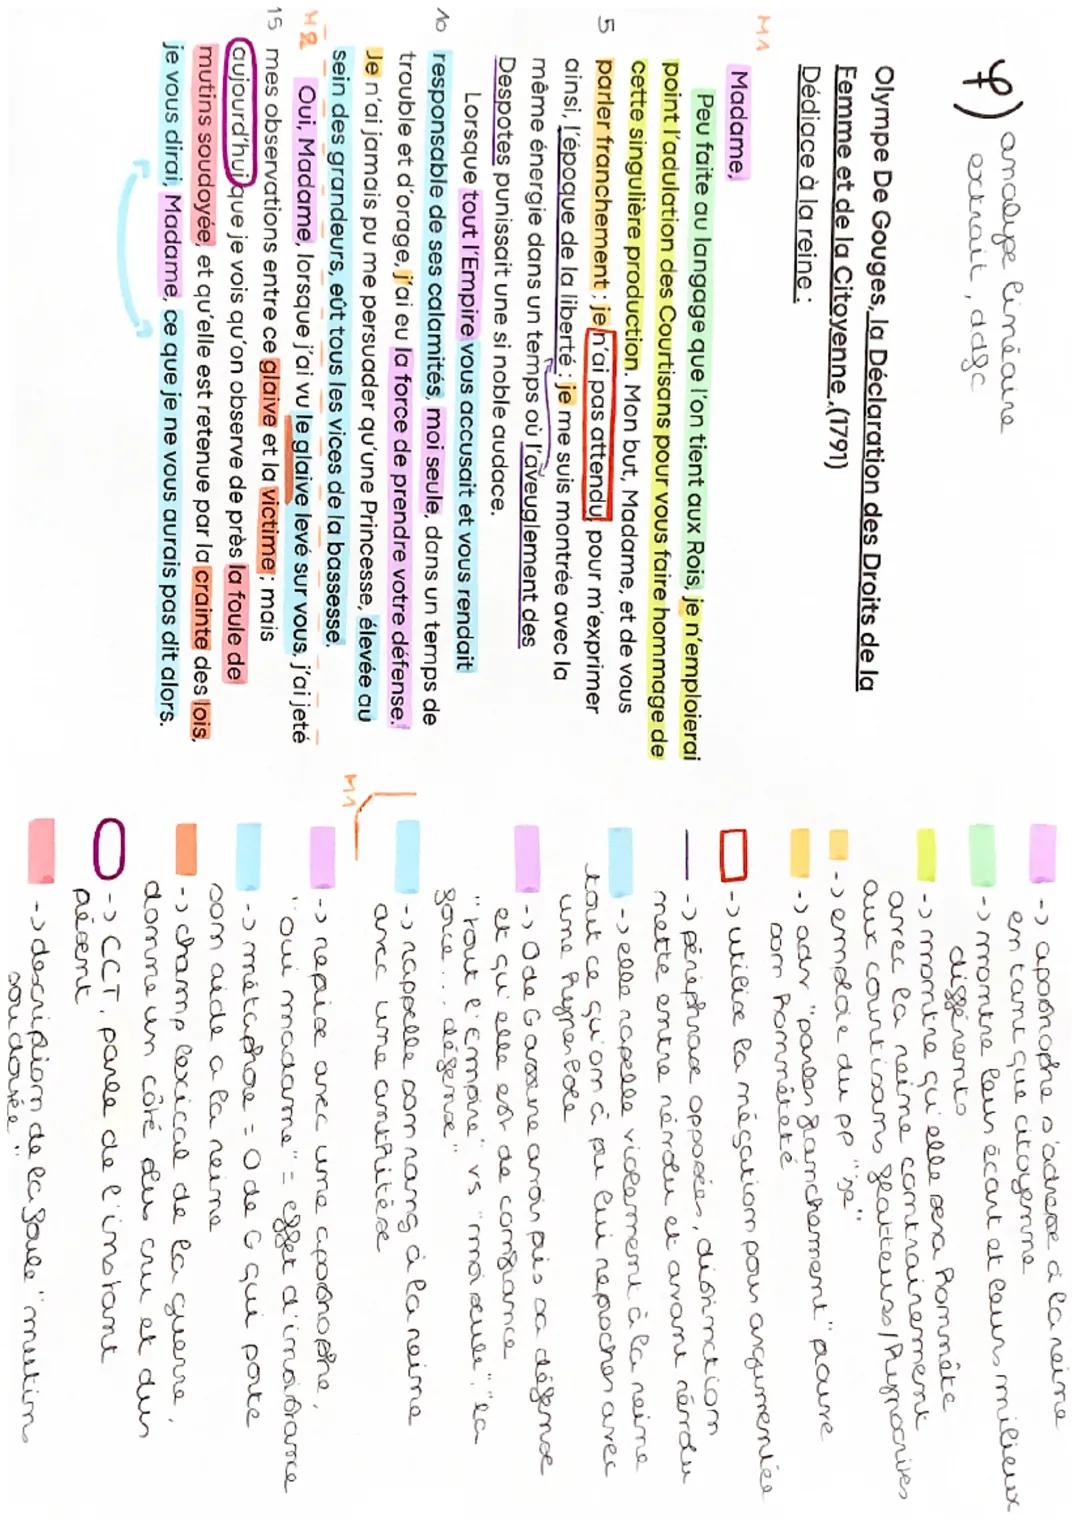 φ) analyse linéaire
extrait, ddfc
Olympe De Gouges, la Déclaration des Droits de la
Femme et de la Citoyenne,(1791)
Dédicace à la reine :
M1
Madame,
Peu faite au langage que l'on tient aux Rois, je n'emploierai
point l'adulation des Courtisans pour vous faire hommage de
cette singulière production. Mon but, Madame, et de vous
5 parler franchement ; je n'ai pas attendu pour m'exprimer
ainsi, l'époque de la liberté ; je me suis montrée avec la
même énergie dans un temps où l'aveuglement des
Despotes punissait une si noble audace.
Lorsque tout l'Empire vous accusait et vous rendait
10 responsable de ses calamités, moi seule, dans un temps de
trouble et d'orage, j'ai eu la force de prendre votre défense.
Je n'ai jamais pu me persuader qu'une Princesse, élevée au
sein des grandeurs, eût tous les vices de la bassesse.
M2 Oui, Madame, lorsque j'ai vu le glaive levé sur vous, j'ai jeté
15 mes observations entre ce glaive et la victime ; mais
aujourd'hui que je vois qu'on observe de près la foule de
mutins soudoyée, et qu'elle est retenue par la crainte des lois,
je vous dirai, Madame, ce que je ne vous aurais pas dit alors.
-> apostrophe s'adresse à la reine
en tant que citoyenne
-> montre leur écart et leurs milieux
différents
-> montre qu'elle sera honnête
avec la reine contrairement
aux courtisans flatteurs/hypocrites
-> emploie du pp "je"
-> adv "parler franchement" prouve
son honnêteté
-> utilise la négation pour argumentée
-> périphrase opposées, distinction
nette entre révolu et avant révolu
-> elle rapelle violemment à la reine
tout ce qu'on a pu lui reprocher avec
une hyperbole
-> O de G assure avoir pris sa défense
et qu'elle est de confiance
"tout l'Empire" vs "moi seule", "la
force... défense"
-> rappelle son rang à la reine
avec une antithèse
M1
-> reprise avec une apostrophe,
"oui madame" = effet d'insistance
-> métaphore = O de G qui porte
son aide a la reine
-> champ lexical de la guerre,
donne un côté plus cru et dur
-> CCT, parle de l'instant
présent
-> description de la foule "mutins
soudoyée"